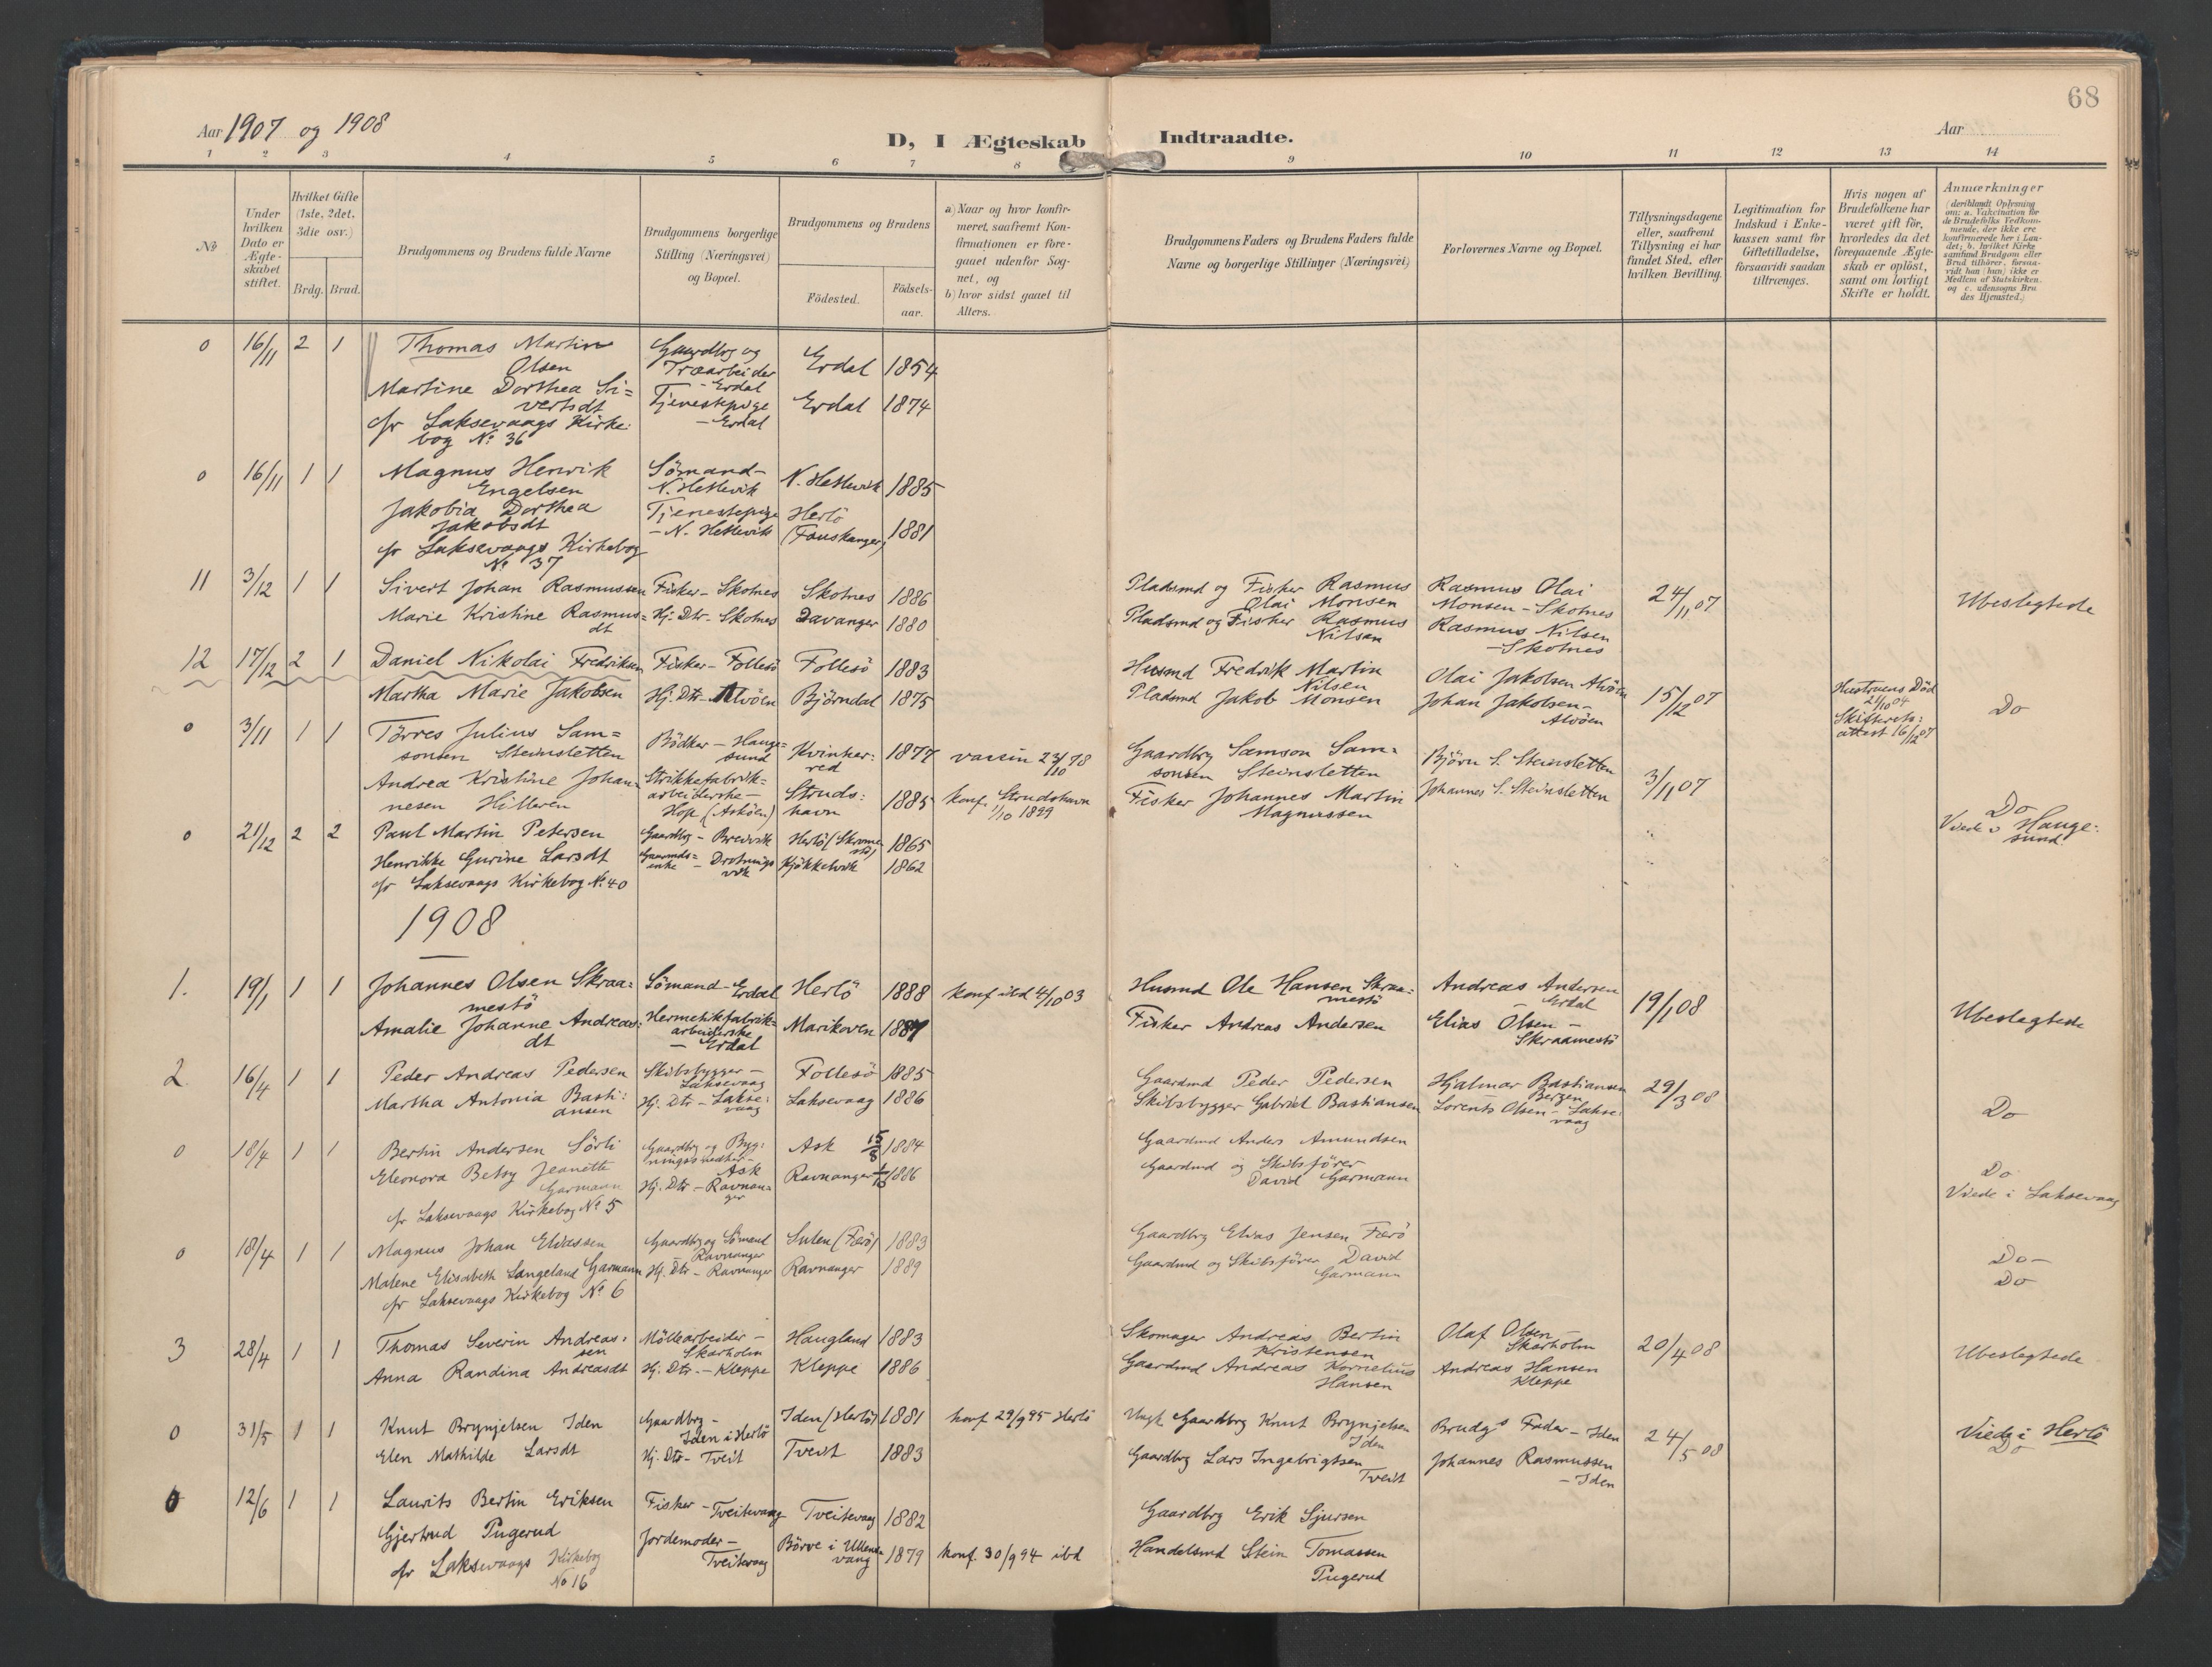 68
Aar 1907 og 1908
D, I Ægteskab Indtraadte.
Aar
1 2 3 4 5 6 7 8 9 10 11 12 13 14
No
Under hvilken Dato er Ægteskabet stiftet.
Hvilket Gifte (1ste, 2det, 3die osv.)
Brdg. Brud.
Brudgommens og Brudens fulde Navne
Brudgommens borgerlige Stilling (Næringsvei) og Bopæl.
Brudgommens og Brudens
Födested.
Födsels-aar.
a) Naar og hvor konfirmeret, saafremt Konfirmationen er foregaaet udenfor Sognet, og
b) hvor sidst gaaet til Alters.
Brudgommens Faders og Brudens Faders fulde Navne og borgerlige Stillinger (Næringsvei)
Forlovernes Navne og Bopæl.
Tillysningsdagene eller, saafremt Tillysning ei har fundet Sted, efter hvilken Bevilling.
Legitimation for Indskud i Enkekassen samt for Giftetilladelse, forsaavidt saadan tiltrænges.
Hvis nogen af Brudefolkene har været gift før, hvorledes da det foregaaende Ægteskab er oplöst, samt om lovligt Skifte er holdt.
Anmærkninger (deriblandt Oplysning om: a. Vakcination for de Brudefolks Vedkommende, der ikke ere konfirmerede her i Landet; b. hvilket Kirkesamfund Brudgom eller Brud tilhörer, forsaavidt han (hun) ikke er Medlem af Statskirken, og c. udensogns Brudes Hjemsted.)
0 16/11 2 1 Thomas Martin Olsen Gaardbrg og Træarbeider - Erdal Erdal 1854
Martine Dorthea Sivertsdt Tjenestepige - Erdal Erdal 1874
cfr Laksevaags Kirkebog No 36
0 16/11 1 1 Magnus Henrik Engelsen Sömand - N. Hetlevik N. Hetlevik 1885
Jakobia Dorthea Jakobsdt Tjenestepige - N. Hetlevik Herlö (Fauskanger) 1881
cfr Laksevaags Kirkebog No 37
11 3/12 1 1 Sivert Johan Rasmussen Fisker - Skotnes Skotnes 1886 Pladsmd og Fisker Rasmus Olai Monsen Rasmus Olai Monsen - Skotnes 24/11 07 Ubeslegtede
Marie Kristine Rasmusdt Hj. Dtr - Skotnes Davanger 1880 Pladsmd og Fisker Rasmus Nilsen Rasmus Nilsen - Skotnes
12 17/12 2 1 Daniel Nikolai Fredriksen Fisker - Follesö Follesö 1883 Husmd Fredrik Martin Nilsen Olai Jakobsen Alvöen 15/12 07 Hustruens Död 21/10 04 Skifterets: attest 16/12 07 Do
Martha Marie Jakobsen Hj. Dtr - Alvöen Björndal 1875 Pladsmd Jakob Monsen Johan Jakobsen - Alvöen
0 3/11 1 1 Törres Julius Samsonsen Steinsletten Bödker - Haugesund Kvinherred 1877 vaccin 23/10 78 Gaardbrg Samson Samsonsen Steinsletten Björn S. Steinsletten 3/11 07 Do
Andrea Kristine Johannesen Hilleren Strikkefabrikarbeiderske - Hop (Asköen) Strudshavn 1885 konf. Strudshavn 1/10 1899 Fisker Johannes Martin Magnussen Johannes S. Steinsletten Viede i Haugesund.
0 21/12 2 2 Paul Martin Petersen Gaardbrg - Bredvik Herlö (Skramestö) 1865
Henrikke Gurine Larsdt Gaarmdsenke - Drotningsvik Kjökkelvik 1862
cfr Laksevaags Kirkebog No. 40
1908
1. 19/1 1 1 Johannes Olsen Skraamestö Sömand - Erdal Herlö 1888 konf ibd 4/10 03 Husmd Ole Hansen Skraamestö Andreas Andersen - Erdal 19/1 08 Ubeslegtede
Amalie Johanne Andreasdt Hermetikfabrikarbeiderske - Erdal Marikoven 1887 Fisker Andreas Andersen Elias Olsen - Skraamestö
2. 16/4 1 1 Peder Andreas Pedersen Skibsbygger - Laksevaag Follesö 1885 Gaardmd Peder Pedersen Hjalmar Bastiansen Bergen 29/3 08 Do
Martha Antonia Bastiansen Hj. Dtr - Laksevaag Laksevaag 1886 Skibsbygger Gabriel Bastiansen Lorents Olsen - Laksevaag
0 18/4 1 1 Bertin Andersen Sörli Gaardbrg og Bygningssnedker - Ask Ask 15/8 1884 Gaardmd Anders Amundsen Do
Eleonora Betsy Jeanette Garmann Hj. Dtr - Ravnanger Ravnanger 1886 Gaardmd og Skibsförer David Garmann Viede i Laksevaag
cfr Laksevaags Kirkebog No 5
0 18/4 1 1 Magnus Johan Eliassen Gaardbrg og Sömand - Ravnanger Sulen (Færö) 1883 Gaardbrg Elias Jensen Færö Do -
Malene Elisabeth Langeland Garmann Hj. Dtr - Ravnanger Ravnanger 1889 Gaardmd og Skibsförer David Garmann Do
cfr Laksevaags Kirkebog No 6
3 28/4 1 1 Thomas Severin Andreassen Möllearbeider - Skarholm Haugland 1883 Skomager Andreas Bertin Kristensen Olaf Olsen - Skarholm 20/4 08 Ubeslegtede
Anna Randina Andreasdt Hj. Dtr. - Kleppe Kleppe 1886 Gaardmd Andreas Kornelius Hansen Andreas Hansen Kleppe
0 31/5 1 1 Knut Brynjelsen Iden Gaardbrg - Iden i Herlö Iden (Herlö) 1881 konf 29/9 95 Herlö Ungk Gaardbrg Knut Brynjelsen Iden Brudgs Fader - Iden 24/5 08 Viede i Herlö
Elen Mathilde Larsdt Hj. Dtr - Tveit Tveit 1883 Gaardbrg Lars Ingebrigtsen Tveit Johannes Rasmussen - Iden Do
0 12/6 1 1 Laurits Bertin Eriksen Fisker - Tveitevaag Tveitevaag 1882 Gaardbrg Erik Sjursen
Gjertrud Pugerud Jordemoder - Tveitevaag Börve i Ullensvang 1879 konf. 30/9 94 ibd Handelsmd Stein Tomassen Pugerud
cfr Laksevaags Kirkebog No 16